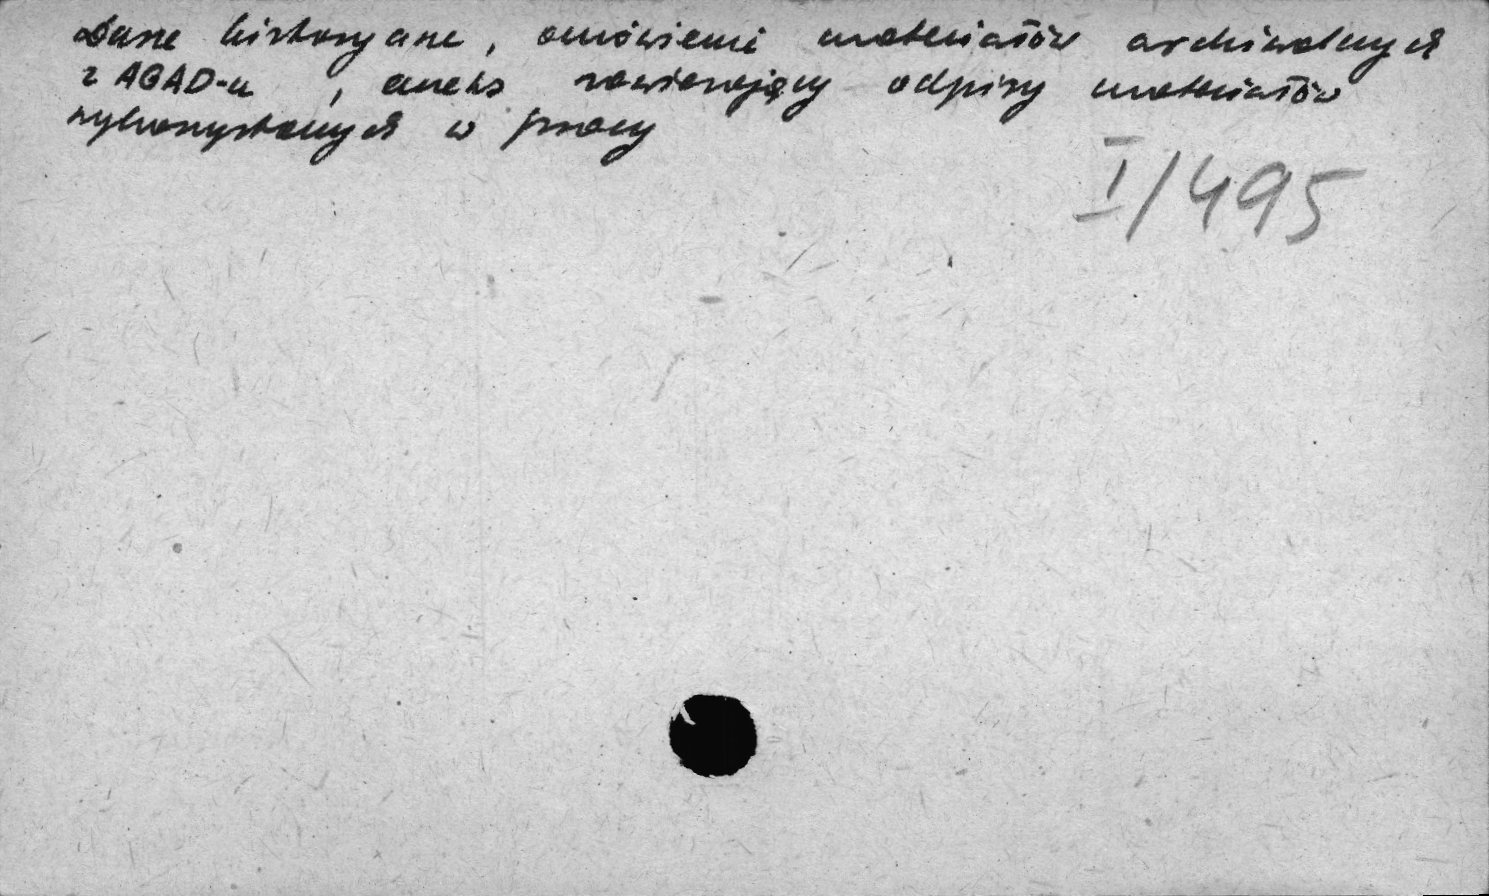 Dane historyczne, omówienie materiałów archiwalnych
z AGAD-u, aneks zawierający odpisy materiałów
wykorzystanych w pracy
I/495